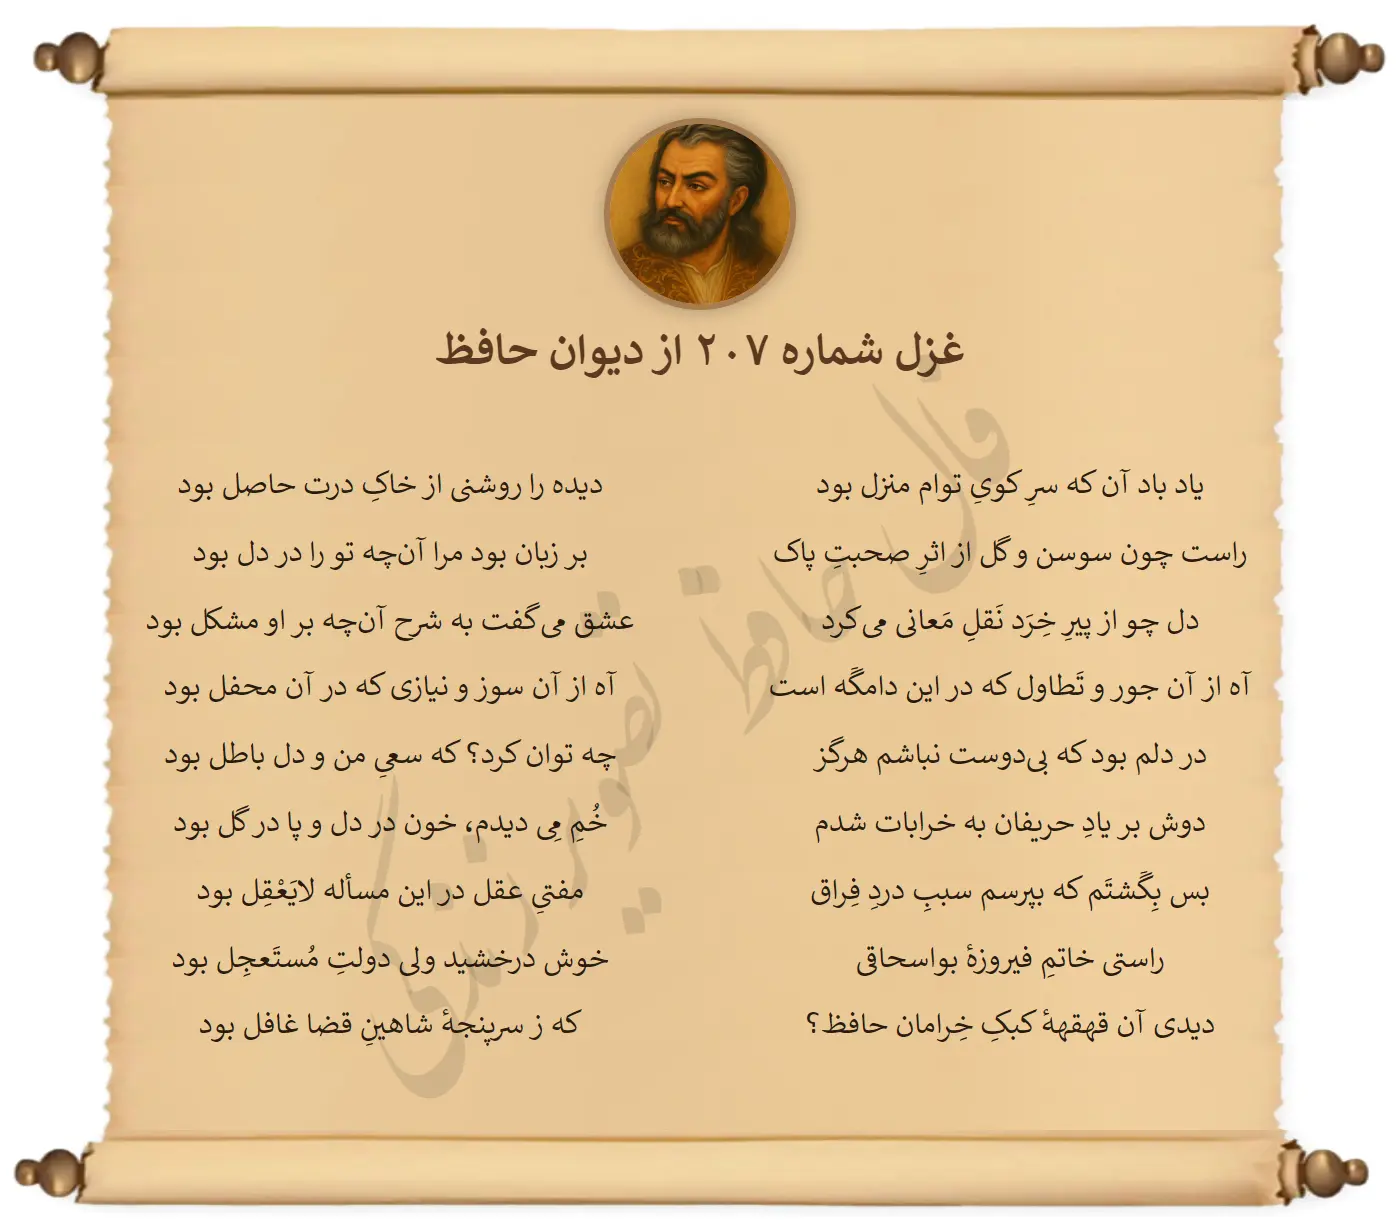 غزل شماره ۲۰۷ از دیوان حافظ
یاد باد آن که سرِ کویِ توام منزل بود
دیده را روشنی از خاکِ درت حاصل بود
راست چون سوسن و گل از اثرِ صحبتِ پاک
بر زبان بود مرا آن‌چه تو را در دل بود
دل چو از پیرِ خِرَد نَقلِ مَعانی می‌کرد
عشق می‌گفت به شرح آن‌چه بر او مشکل بود
آه از آن جور و تَطاول که در این دامگَه است
آه از آن سوز و نیازی که در آن محفل بود
در دلم بود که بی‌دوست نباشم هرگز
چه توان کرد؟ که سعیِ من و دل باطل بود
دوش بر یادِ حریفان به خرابات شدم
خُمِ مِی دیدم، خون در دل و پا در گل بود
بس بِگَشتَم که بپرسم سببِ دردِ فِراق
مفتیِ عقل در این مسأله لایَعْقِل بود
راستی خاتمِ فیروزهٔ بواسحاقی
خوش درخشید ولی دولتِ مُستَعجِل بود
دیدی آن قهقههٔ کبکِ خِرامان حافظ؟
که ز سرپنجهٔ شاهینِ قضا غافل بود
فال حافظ تصویر زندگی